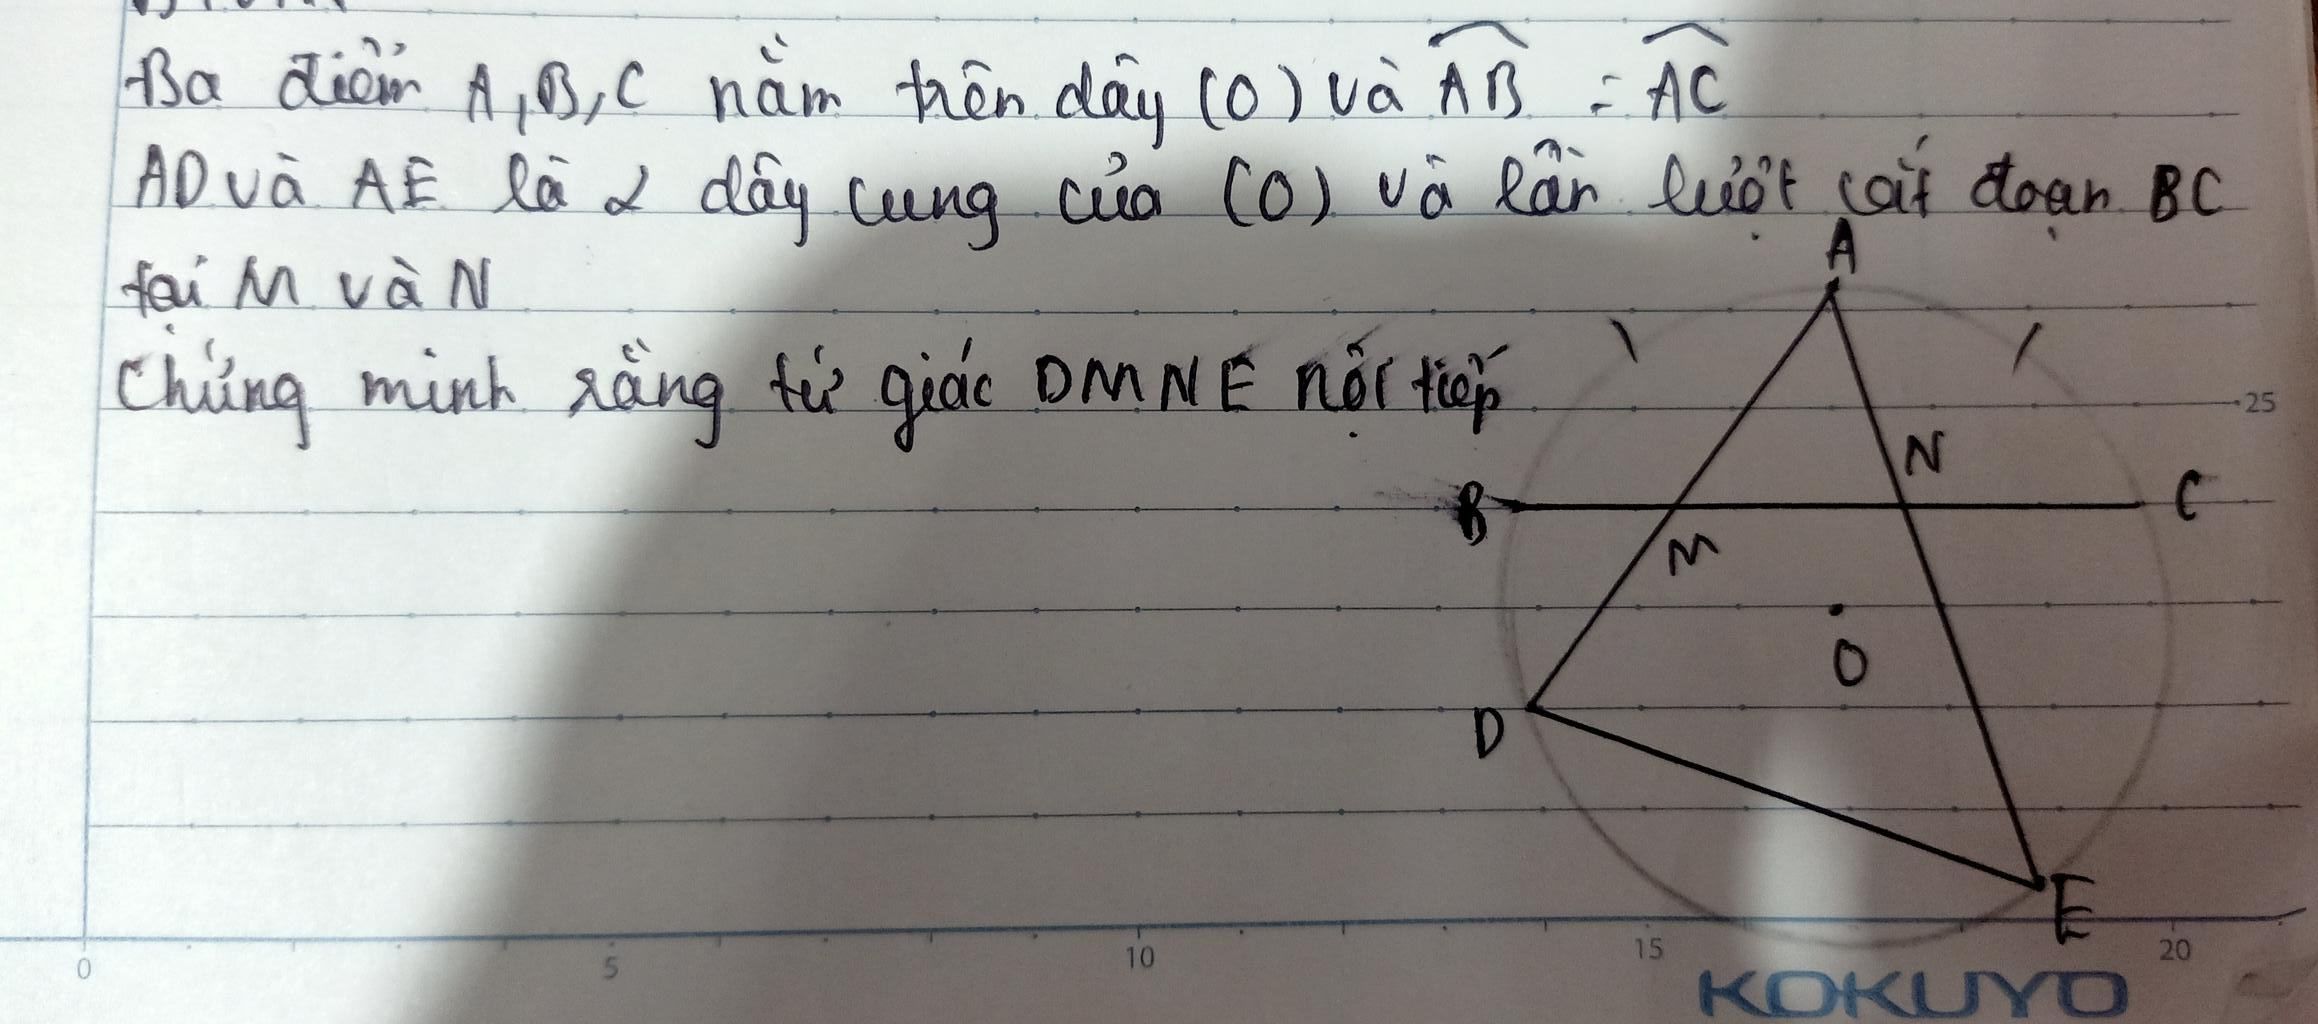 Ba điểm A, B, C nằm trên dây (O) và AB = AC
AD và AE là 2 dây cung của (O) và lần lượt cắt đoạn BC
tại M và N
Chứng minh rằng tứ giác DMNE nội tiếp
A
25
N
B
C
M
O
D
E
0 5 10 15 20
KOKUYO